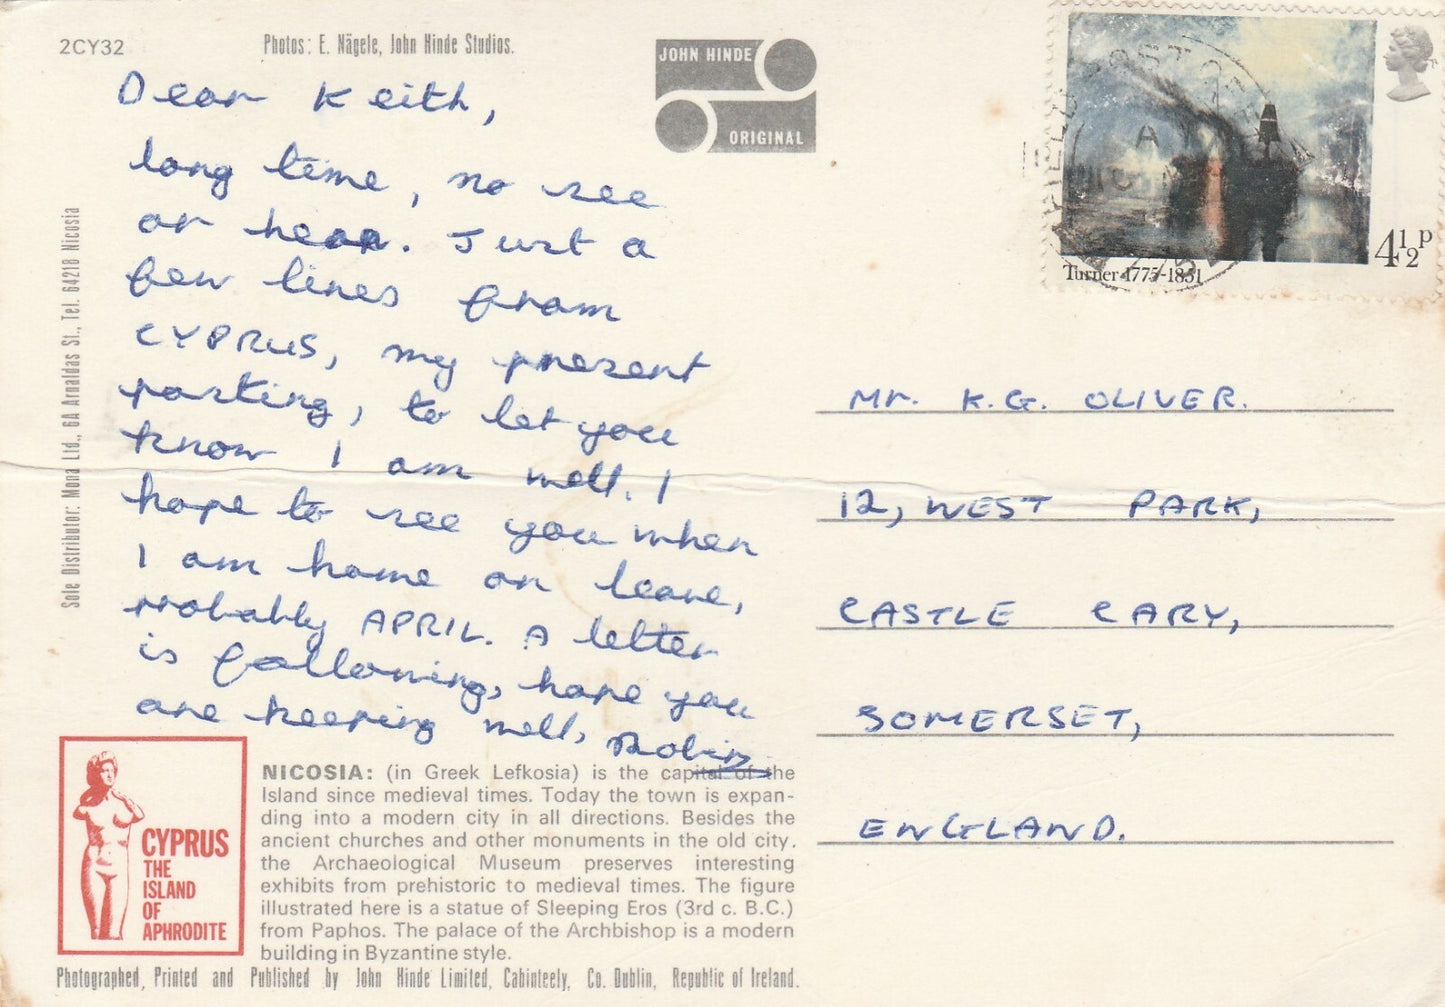 2CY32
Photos: E. Nägele, John Hinde Studios.
JOHN HINDE
ORIGINAL
Dear Keith,
long time, no see
or hear. Just a
few lines from
CYPRUS, my present
posting, to let you
know I am well. I
hope to see you when
I am home on leave,
probably APRIL. A letter
is following, hope you
are keeping well, Robin
Sole Distributor: Mona Ltd., 6A Arnaldas St., Tel. 64218 Nicosia
Turner 1775-1851
4½P
Mr. K.G. OLIVER.
12, WEST PARK,
CASTLE CARY,
SOMERSET,
ENGLAND.
CYPRUS
THE
ISLAND
OF
APHRODITE
NICOSIA: (in Greek Lefkosia) is the capital of the
Island since medieval times. Today the town is expan-
ding into a modern city in all directions. Besides the
ancient churches and other monuments in the old city.
the Archaeological Museum preserves interesting
exhibits from prehistoric to medieval times. The figure
illustrated here is a statue of Sleeping Eros (3rd c. B.C.)
from Paphos. The palace of the Archbishop is a modern
building in Byzantine style.
Photographed, Printed and Published by John Hinde Limited, Cabinteely, Co. Dublin, Republic of Ireland.